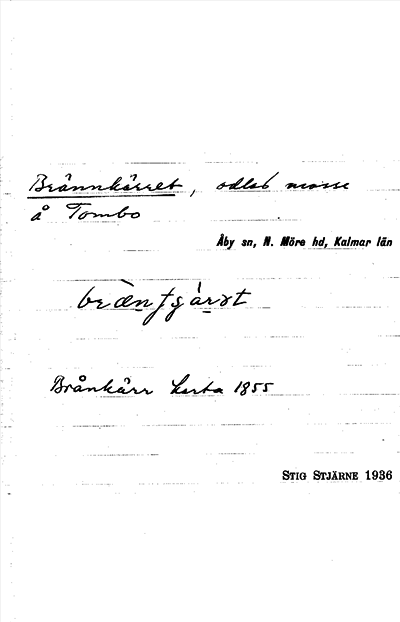 Brännkärret, odlad mosse
å Tombo
Åby sn, N. Möre hd, Kalmar län
Brånkärr karta 1855
STIG STJÄRNE 1936